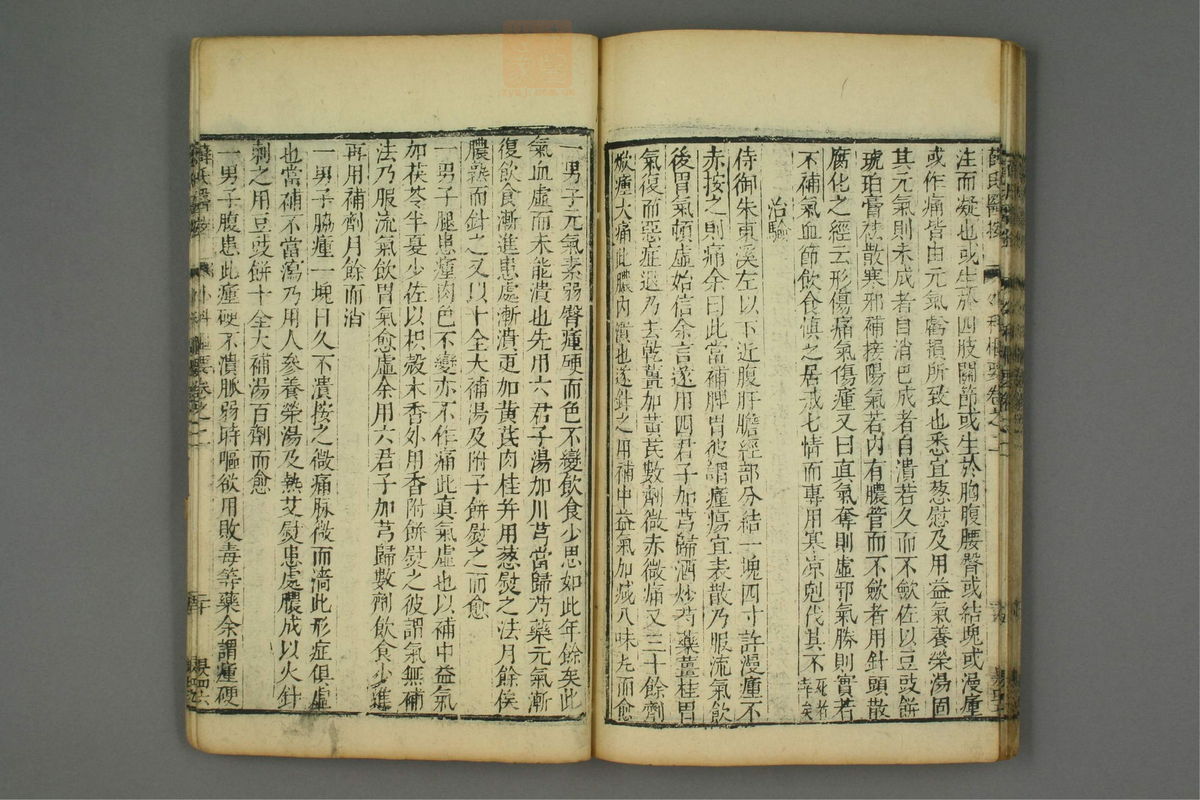 注而凝也或生於四肢關節或生於胸腹腰臀或結塊或漫腫
或作痛皆由元氣虧損所致也悉宜葱慰及用益氣養榮湯固
其元氣則未成者自消巴成者自潰若久而不歛佐以豆豉餅
琥珀膏祛散寒邪補接陽氣若內有膿管而不歛者用針頭散
腐化之經云形傷痛氣傷腫又曰真氣奪則虛邪氣勝則實若
不補氣血節飲食慎起居戒七情而專用寒凉剋伐其不死者幸矣
治驗
侍御朱東溪左以下近腹肝膽經部分結一塊四寸許漫腫不
赤按之則痛余曰此當補脾胃彼謂腫瘍宜表散乃服流氣飲
後胃氣頓虛始信余言遂用四君子加芎歸酒炒芍藥薑桂胃
氣復而惡症退乃去乾薑加茋芪數劑微赤微痛又三十餘劑
焮腫大痛此膿內潰也遂針之用補中益氣加減八味丸而愈
一男子元氣素弱臀腫硬而色不變飲食少思如此年餘矣此
氣血虛而未能潰也先用六君子湯加川芎當歸芍藥元氣漸
復飲食漸進患處漸潰更加黃芪肉桂并用葱熨之法月餘俟
膿熟而針之又以十全大補湯及附子餅熨之而愈
一男子腿患腫肉色不變亦不作痛此真氣虛也以補中益氣
加茯苓半夏少佐以枳殼木香外用香附餅熨之彼謂氣無補
法乃服流氣飲胃氣愈虛余用六君子加芎歸數劑飲食少進
再用補劑月餘而消
一男子脇腫一塊日久不潰按之微痛脉微而濇此形症俱虛
也當補不當瀉乃用人參養榮湯及熱艾熨患處膿成以火針
刺之用豆豉餅十全大補湯百劑而愈
一男子腹患此腫硬不潰脈弱時嘔欲用敗毒等藥余謂腫硬